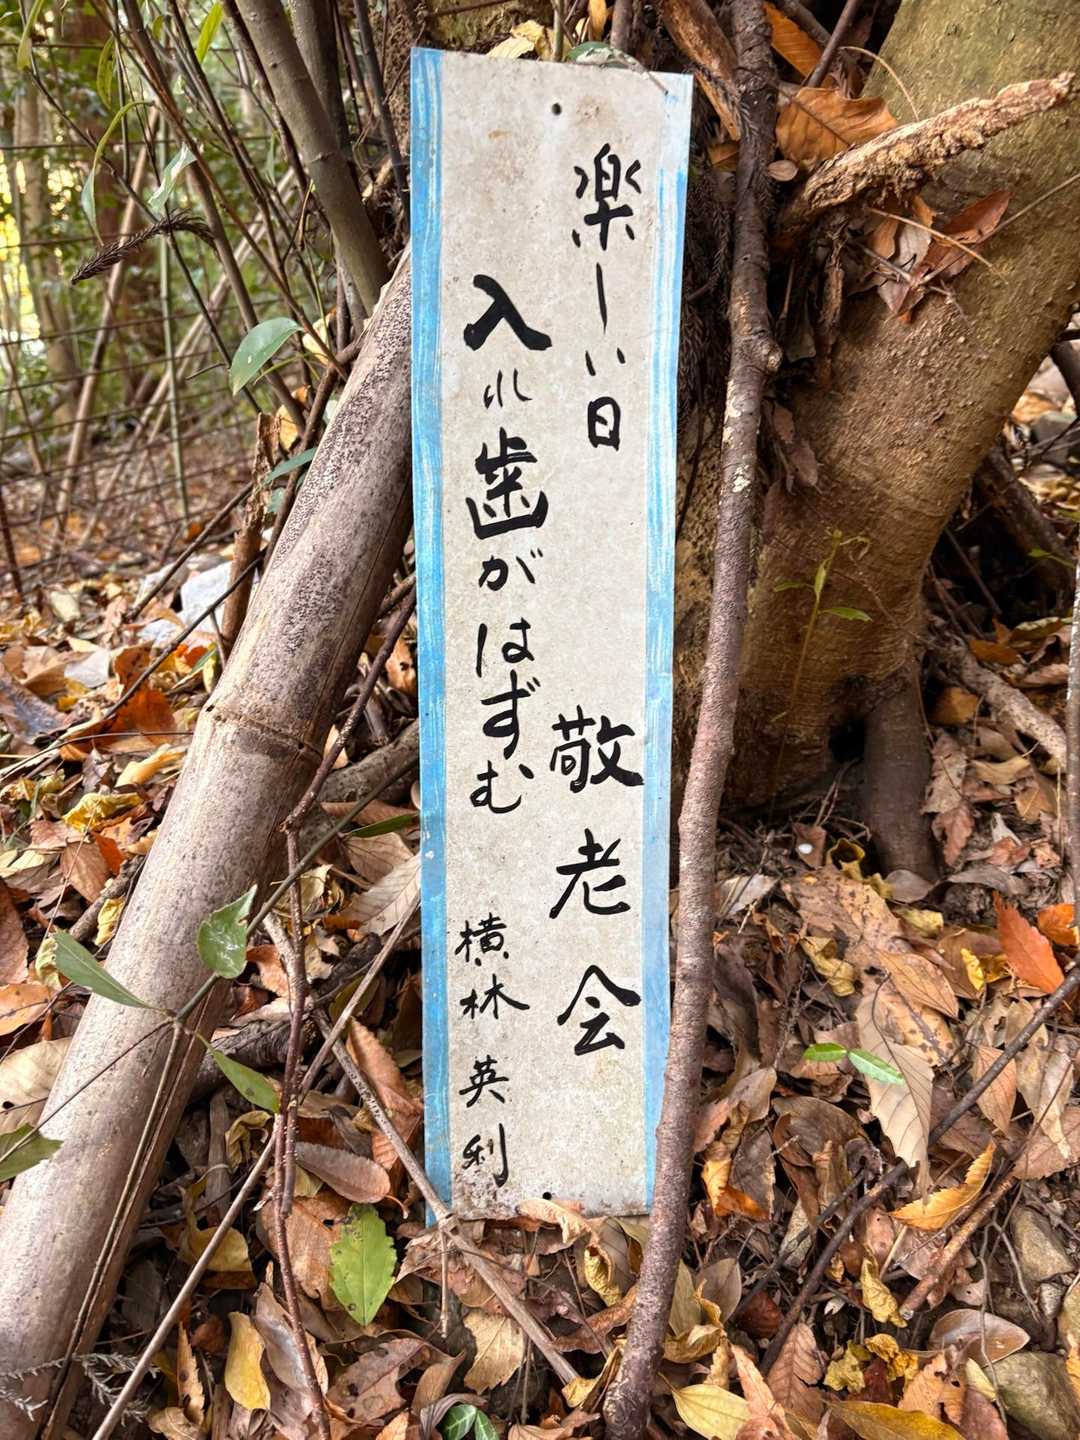 楽しい日 敬老会
入れ歯がはずむ 横林英利